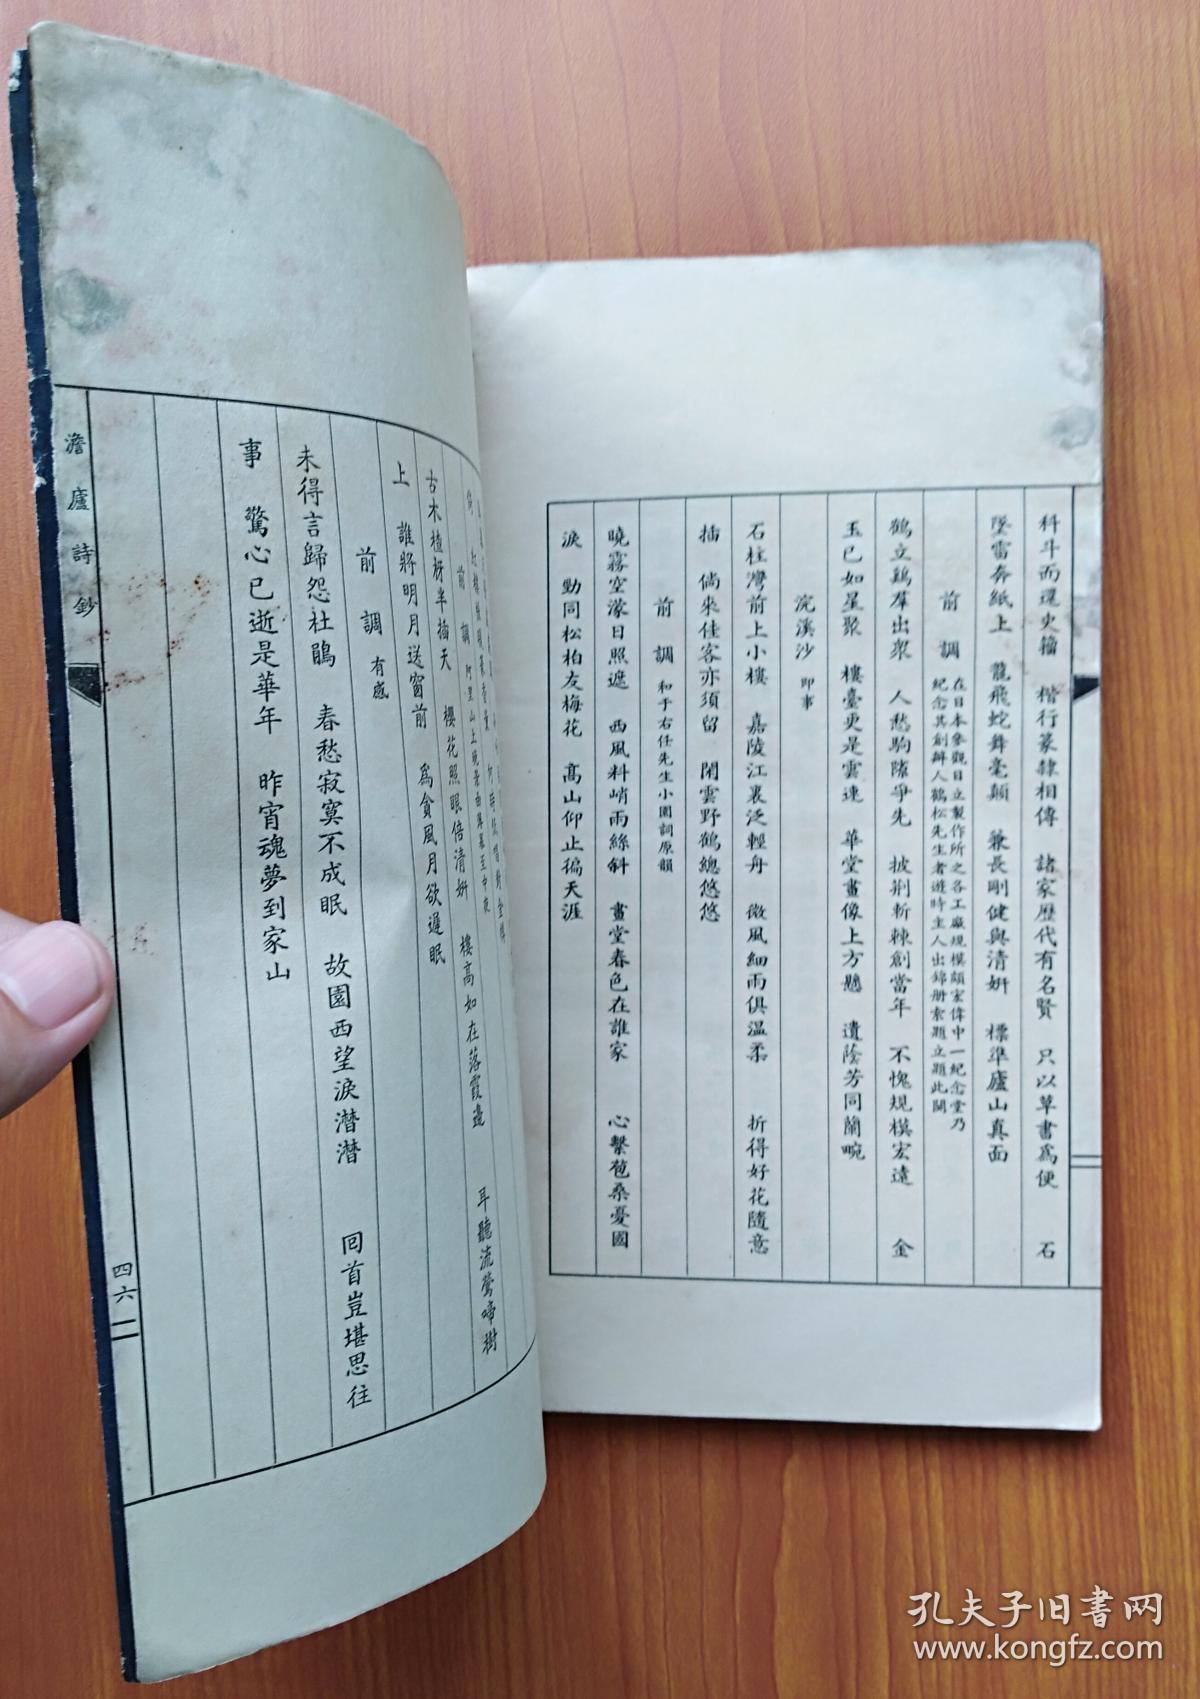 科斗而還史籀　楷行篆隸相傳　諸家歷代有名賢　只以草書爲便　石
墜雷奔紙上　龍飛蛇舞毫顛　兼長剛健與清妍　標準廬山真面
前調　在日本參觀日立製作所之各工廠規模頗宏偉中一紀念堂乃
紀念其創辦人鶴松先生者遊時主人出錦册索題立題此闋
鶴立鷄羣出衆　人愁駒隙爭先　披荆斬棘創當年　不愧規模宏遠　金
玉已如星聚　樓臺更是雲連　華堂畫像上方懸　遺蔭芳同蘭畹
浣溪沙　即事
石柱灣前上小樓　嘉陵江裏泛輕舟　微風細雨俱溫柔　折得好花隨意
插　倘來佳客亦須留　閑雲野鶴總悠悠
前調　和于右任先生小園詞原韻
曉霧空濛日照遮　西風料峭雨絲斜　畫堂春色在誰家　心繫苞桑憂國
淚　勁同松柏友梅花　高山仰止徧天涯
耳聽流鶯啼樹
前調　阿里山上晚
古木楂枒半插天　櫻花照眼倍清妍　樓高如在落霞邊
上　誰將明月送窗前　爲貪風月欲遲眠
前調　有感
未得言歸怨杜鵑　春愁寂寞不成眠　故園西望淚潸潸　回首豈堪思往
事　驚心已逝是華年　昨宵魂夢到家山
澹廬詩鈔
四六
孔夫子旧书网
www.kongfz.com